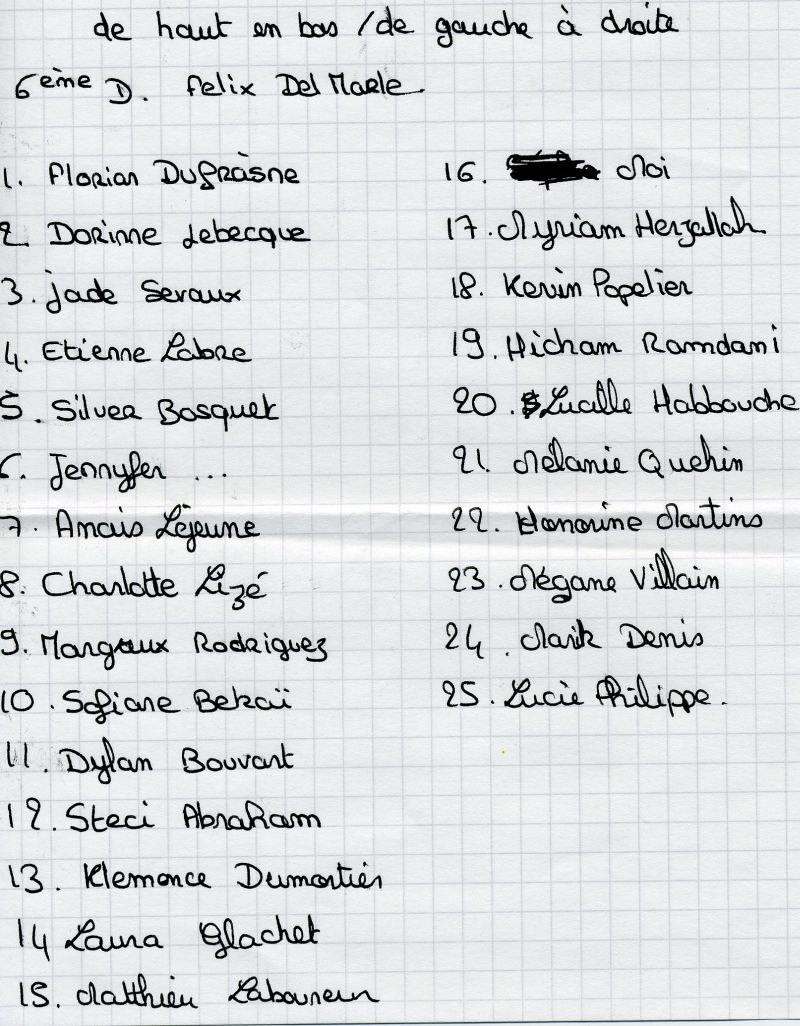 de haut en bas / de gauche à droite
6ème D. Felix Del Marle.
1. Florian Dufrasne
2. Dorinne Lebecque
3. Jade Seraux
4. Etienne Labre
5. Silver Bosquet
6. Jennyfer ...
7. Anaïs Lejeune
8. Charlotte Lizé
9. Margaux Rodriguez
10. Sofiane Bekaï
11. Dylan Bouvart
12. Steci Abraham
13. Klemence Dumortier
14 Laura Glachet
15. Matthieu Laboureur
16. Moi
17. Myriam Herzallah
18. Kevin Papelier
19. Hicham Ramdani
20. Lucille Habbouche
21. Mélanie Quehin
22. Honorine Martins
23. Mégane Villain
24. Marik Denis
25. Lucie Philippe.